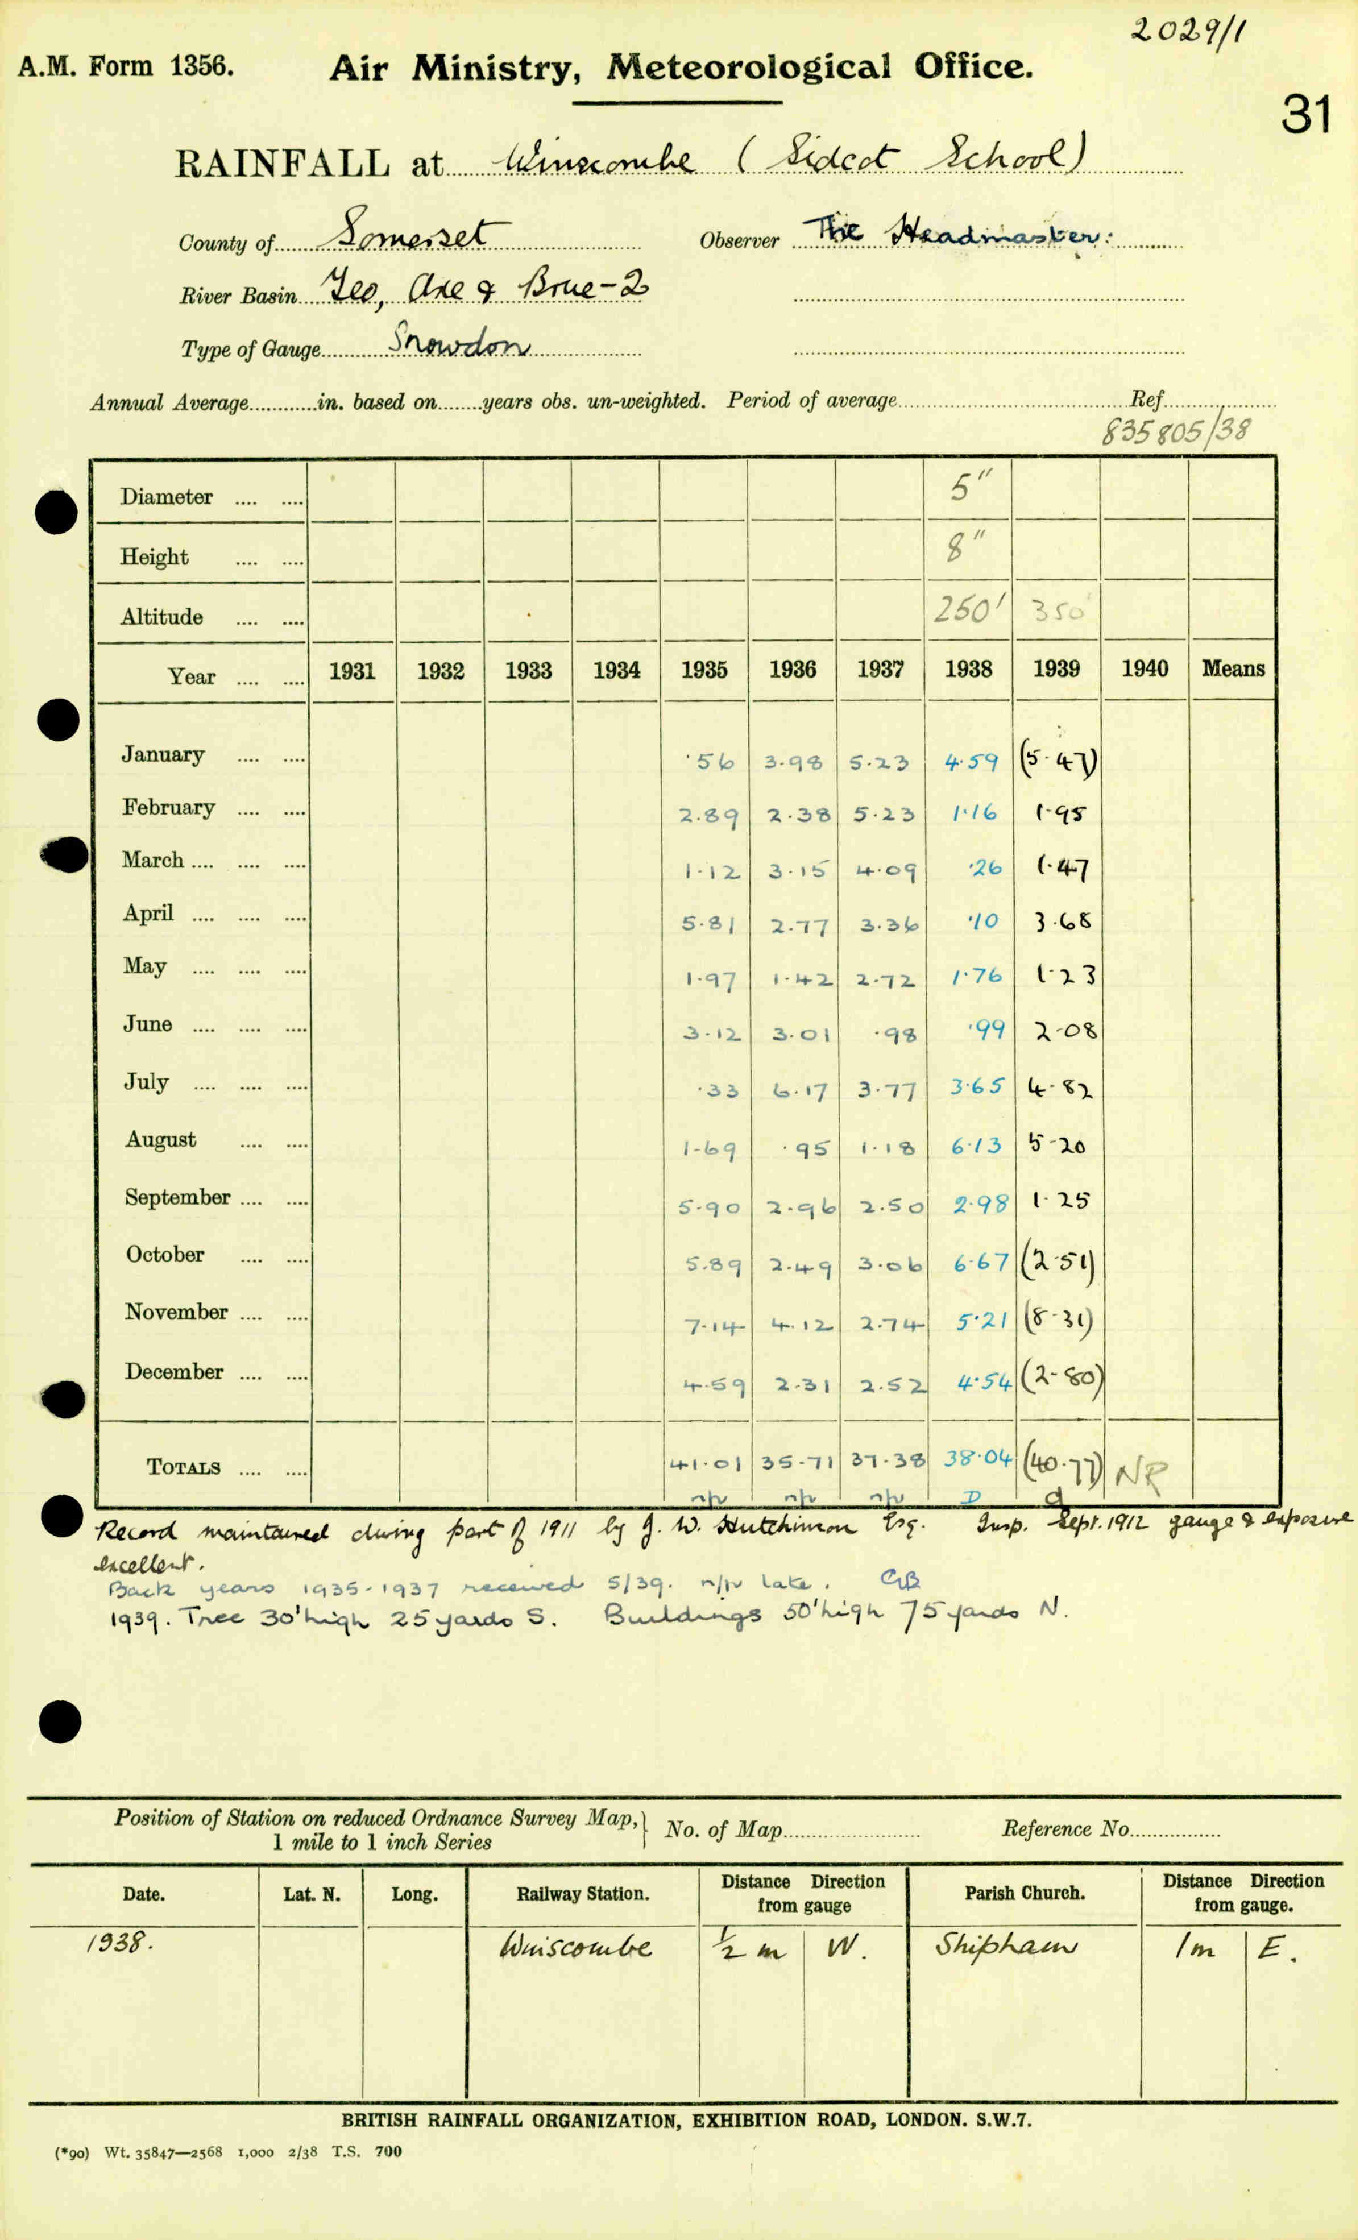 2029/1
A.M. Form 1356. Air Ministry, Meteorological Office.
31
RAINFALL at Winscombe (Sidcot School)
County of Somerset Observer The Headmaster:
River Basin Yeo, Axe & Brue-2
Type of Gauge Snowdon
Annual Average............in. based on........years obs. un-weighted. Period of average.............................. Ref...............
835805/38
Diameter .... .... 5"
Height .... .... 8"
Altitude .... .... 250' 350'
Year .... .... 1931 1932 1933 1934 1935 1936 1937 1938 1939 1940 Means
January .... .... ·56 3·98 5·23 4·59 (5·47)
February .... .... 2·89 2·38 5·23 1·16 1·95
March .... .... .... 1·12 3·15 4·09 ·26 1·47
April .... .... .... 5·81 2·77 3·36 ·10 3·68
May .... .... .... 1·97 1·42 2·72 1·76 1·23
June .... .... .... 3·12 3·01 ·98 ·99 2·08
July .... .... .... ·33 6·17 3·77 3·65 4·82
August .... .... 1·69 ·95 1·18 6·13 5·20
September .... .... 5·90 2·96 2·50 2·98 1·25
October .... .... 5·89 2·49 3·06 6·67 (2·51)
November .... .... 7·14 4·12 2·74 5·21 (8·31)
December .... .... 4·59 2·31 2·52 4·54 (2·80)
TOTALS .... .... 41·01 35·71 37·38 38·04 (40·77) NR
n/v n/v n/v D a
Record maintained during part of 1911 by J. W. Hutchinson Esq. Insp. Sept. 1912 gauge & exposure
excellent.
Back years 1935-1937 received 5/39. n/v late. GB
1939. Tree 30' high 25 yards S. Buildings 50' high 75 yards N.
Position of Station on reduced Ordnance Survey Map, } No. of Map........................ Reference No................
1 mile to 1 inch Series
Date. Lat. N. Long. Railway Station. Distance Direction from gauge Parish Church. Distance Direction from gauge.
1938. Winscombe ½ m W. Shipham 1m E.
BRITISH RAINFALL ORGANIZATION, EXHIBITION ROAD, LONDON. S.W.7.
(*90) Wt. 35847—2568 1,000 2/38 T.S. 700